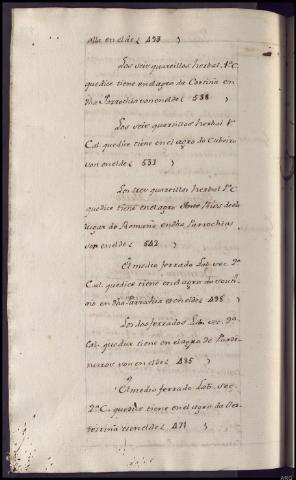 alli en el de ( 433 )
Los seis quareillos herbal 1ª C.
que dice tiene en el agro de Cortiña en
dha Parrochia son en el de ( 538 )
Los seis quareillos herbal 1ª
Cal. que dice tiene en el agro do Cubeiro
son en el de ( 533 )
Los tres quareillos herbal 1ª C.
que dice tiene en el agro Rios de el
lugar de Romariz en dha Parrochia
son en el de ( 542 )
El medio ferrado Lab. sec. 2ª
Cal. que dice tiene en el agro do
en dha Parrochia es en el de ( 495 )
Los dos ferrados Lab. sec. 2ª
Cal. que dice tiene en el agro de
son en el de ( 485 )
El medio ferrado Lab. sec.
2ª C. que dice tiene en el agro da
es en el de ( 471 )
ARG